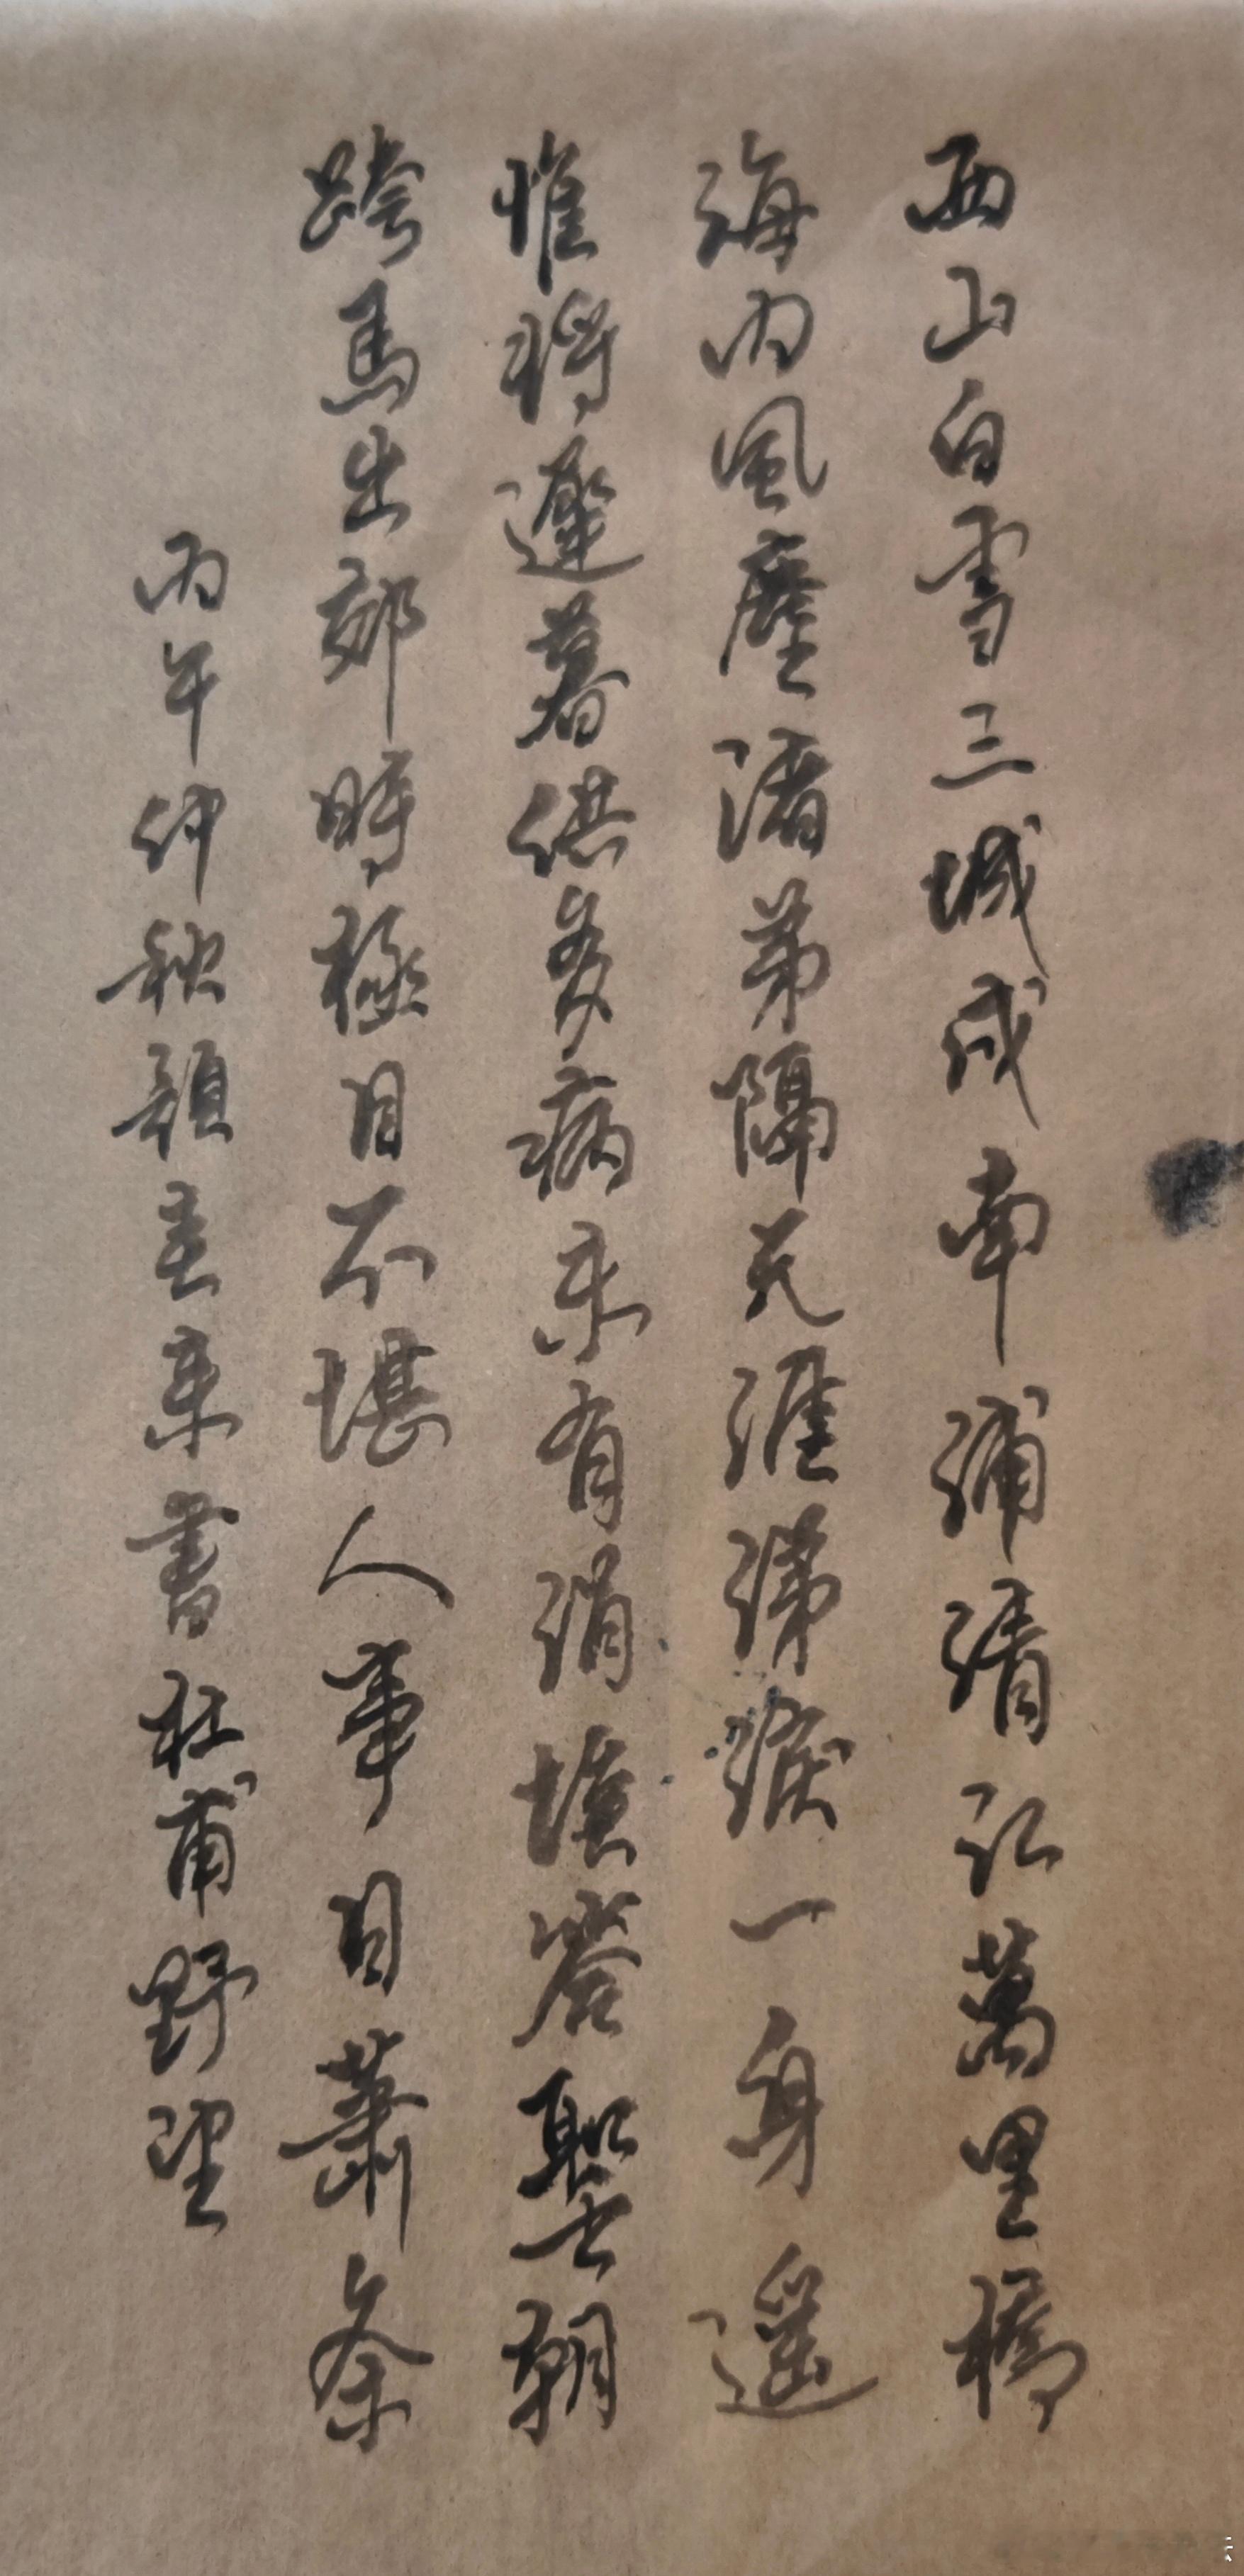 西山白雪三城戍南浦清江萬里橋
海內風塵諸弟隔天涯涕淚一身遙
惟將遲暮供多病未有涓埃答聖朝
跨馬出郊時極目不堪人事日蕭条
丙午仲秋韻書杜甫野望